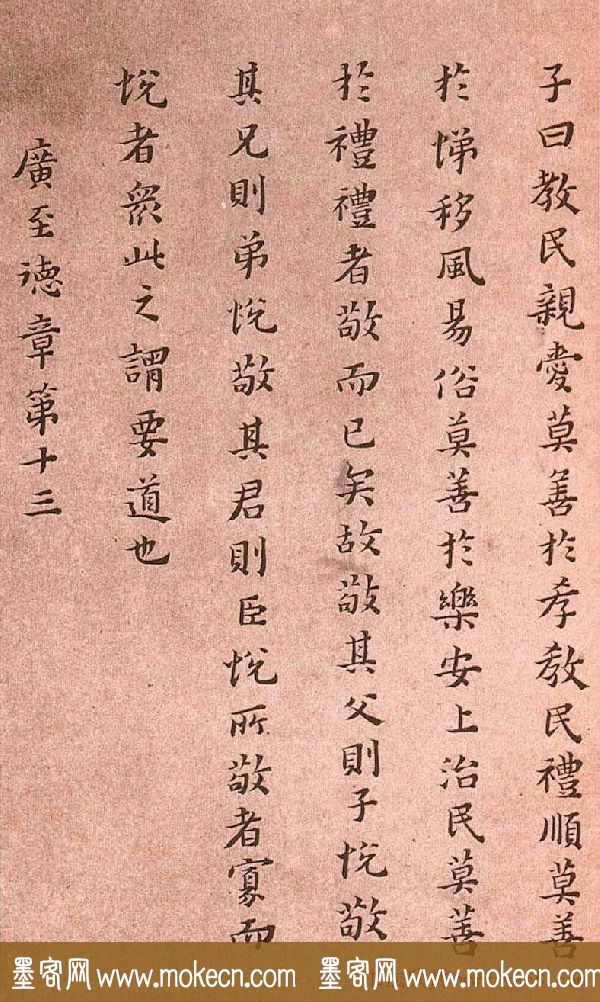 子曰教民親愛莫善於孝教民禮順莫善
於悌移風易俗莫善於樂安上治民莫善
於禮禮者敬而已矣故敬其父則子悅敬
其兄則弟悅敬其君則臣悅所敬者寡而
悅者衆此之謂要道也
廣至德章第十三
墨客网www.mokecn.com 墨客网www.mokecn.com